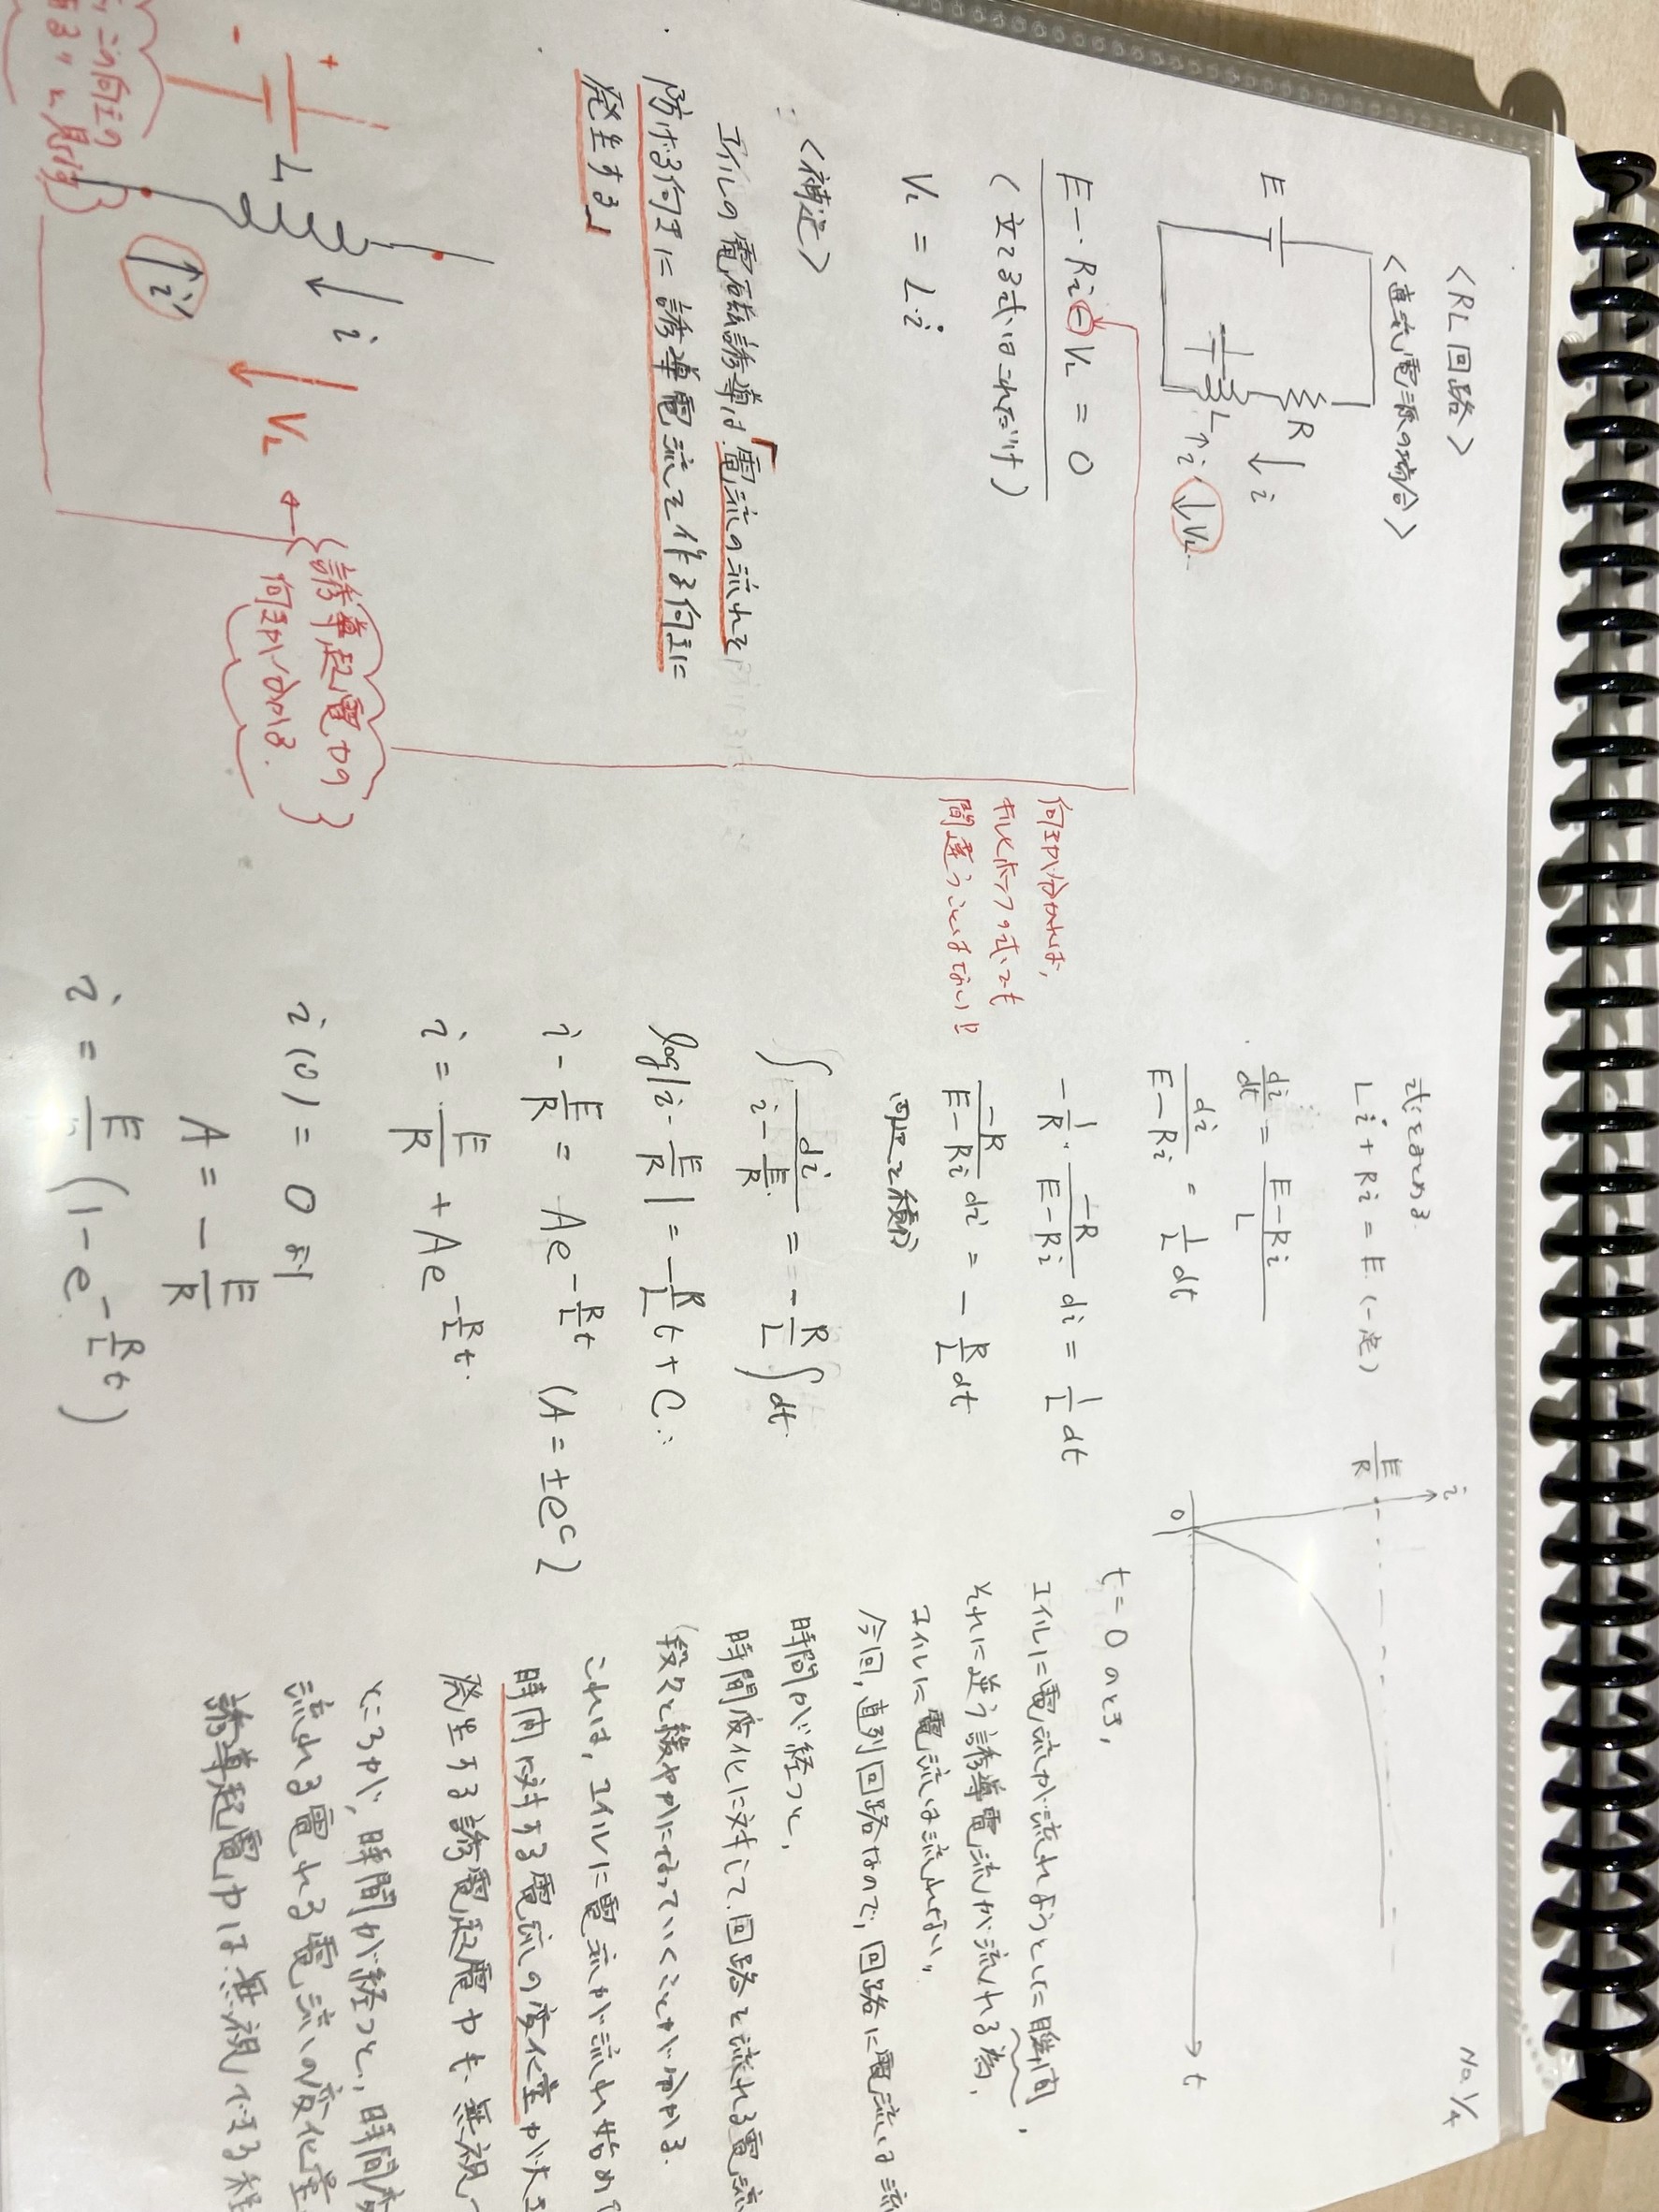 No.1/4
<RL回路>
<直流電源の場合>
E
R
i
L
i
VL
E - Ri - VL = 0
(立てる式はこれだけ)
VL = Li̇
<補足>
コイルの電磁誘導は「電流の流れを
防げる向きに誘導電流を作る向きに
発生する」
+
-
L
i
i'
VL
{誘導起電力の
向きが分かる.}
この向きの
見れば
向きが分かれば,
キルヒホッフの式でも
間違うことはない!!
式をまとめる
Li̇ + Ri = E (一定)
di/dt = (E - Ri)/L
di/(E - Ri) = 1/L dt
-1/R · -R/(E - Ri) di = 1/L dt
-R/(E - Ri) di = - R/L dt
両辺を積分
∫ di/(i - E/R) = - R/L ∫ dt
log|i - E/R| = - R/L t + C
i - E/R = Ae^(-R/L t) (A = ±e^C)
i = E/R + Ae^(-R/L t)
i(0) = 0 より
A = - E/R
i = E/R (1 - e^(-R/L t))
i
E/R
0
t
t = 0 のとき,
コイルに電流が流れようとした瞬間,
それに逆う誘導電流が流れる為,
コイルに電流は流れない。
今回, 直列回路なので, 回路に電流は流
時間が経つと,
時間変化に対して回路を流れる電流
段々と緩やかになっていくことが分かる.
これは, コイルに電流が流れ始め
時間に対する電流の変化量が大き
発生する誘電起電力も無視
ところが, 時間が経つと, 時間変
流れる電れる電流の変化量
誘導起電力は無視できる程